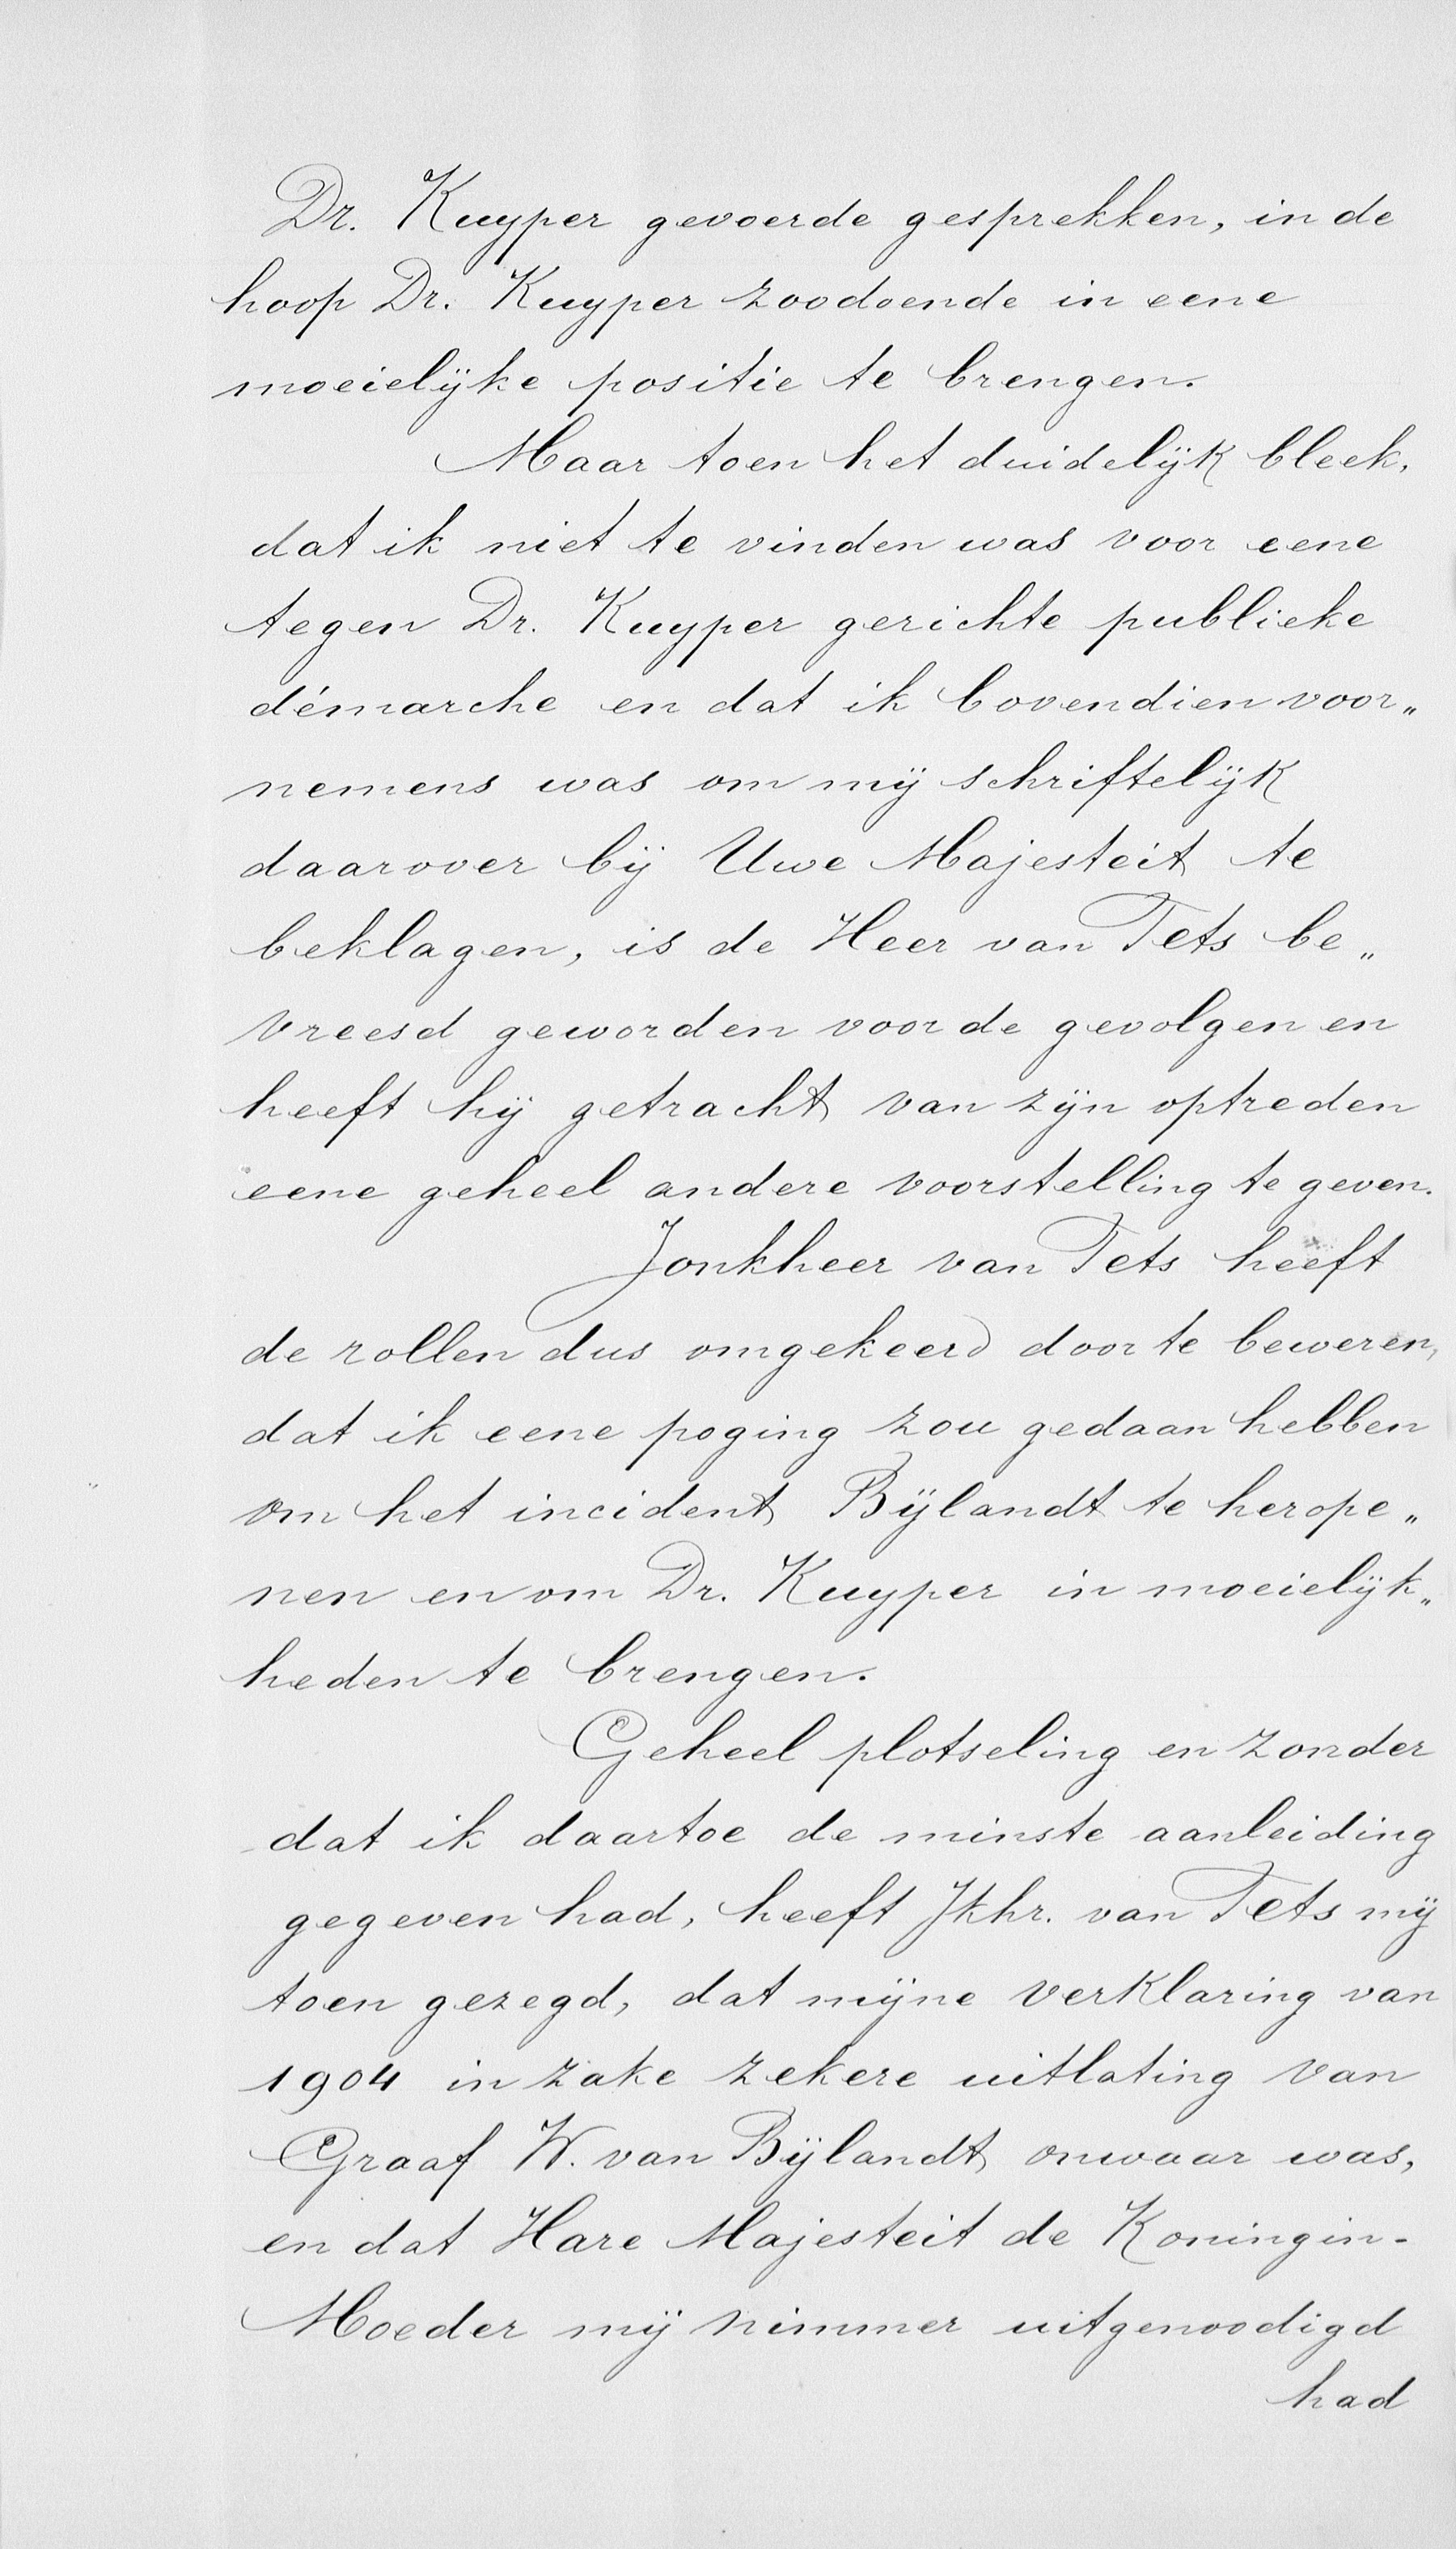 Dr. Kuyper gevoerde gesprekken, in de
hoop Dr. Kuyper zoodoende in eene
moeielijke positie te brengen.
Maar toen het duidelijk bleek,
dat ik niet te vinden was voor eene
tegen Dr. Kuyper gerichte publieke
démarche en dat ik bovendien voor„
nemens was om mij schriftelijk
daarover bij Uwe Majesteit te
beklagen, is de Heer van Tets be„
vreesd geworden voor de gevolgen en
heeft hij getracht van zijn optreden
eene geheel andere voorstelling te geven.
Jonkheer van Tets heeft
de rollen dus omgekeerd door te beweren,
dat ik eene poging zou gedaan hebben
om het incident Bijlandt te herope„
nen en om Dr. Kuyper in moeielijk„
heden te brengen.
Geheel plotseling en zonder
dat ik daartoe de minste aanleiding
gegeven had, heeft Jkhr. van Tets mij
toen gezegd, dat mijne verklaring van
1904 in zake zekere uitlating van
Graaf W. van Bijlandt onwaar was,
en dat Hare Majesteit de Koningin-
Moeder mij nimmer uitgenoodigd
had